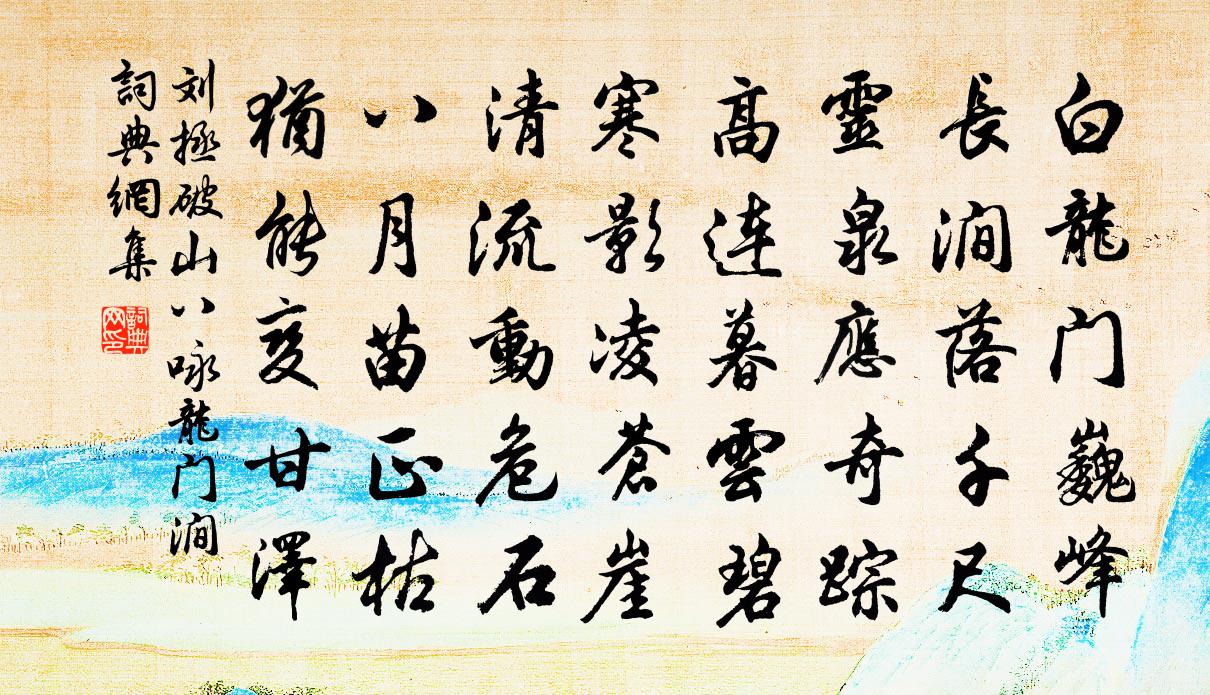 白龍门巍峰
長澗落千尺
靈泉應奇踪
高連暮雲碧
寒影凌蒼崖
清流動危石
八月苗正枯
猶能变甘澤
刘拯破山八咏龍门澗
詞典網集
詞典网印